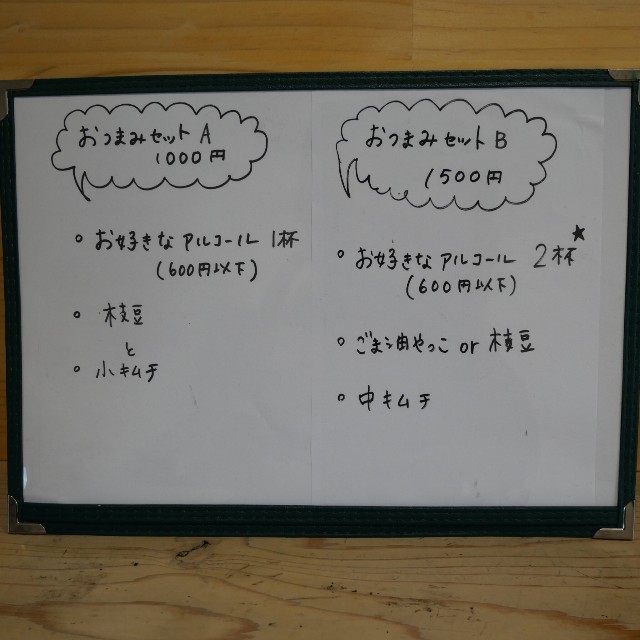 おつまみセット A
1000円
○ お好きなアルコール 1杯
(600円以下)
○ 枝豆
と
○ 小キムチ
おつまみセット B
1500円
○ お好きなアルコール 2杯★
(600円以下)
○ ごま油やっこ or 枝豆
○ 中キムチ